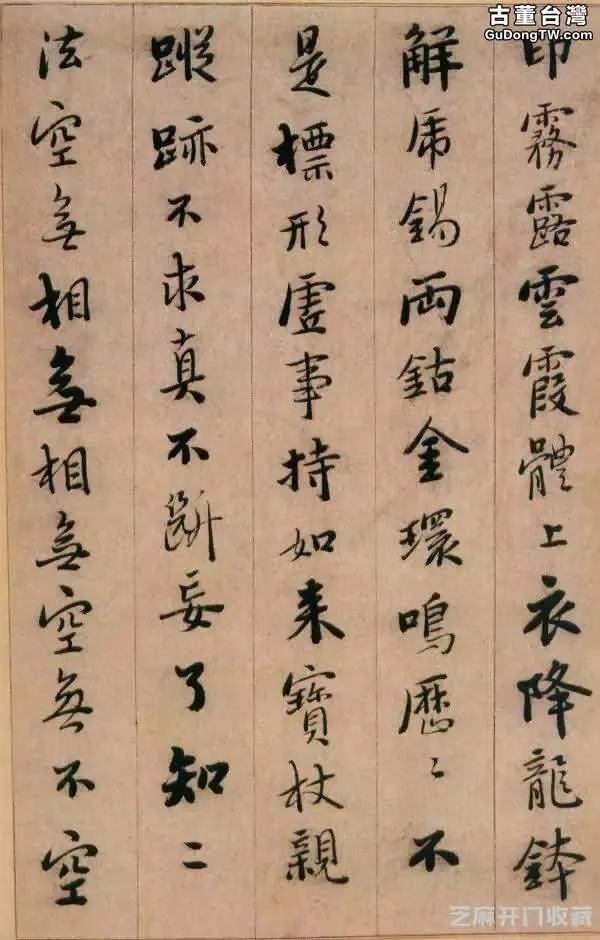 古董台灣
GuDongTW.com
印霧露雲霞體上衣降龍鉢
解虎錫両鈷金環鳴歷〻不
是標形虛事持如来寶杖親
蹤跡不求真不斷妄了知二
法空無相無相無空無不空
芝麻开门收藏